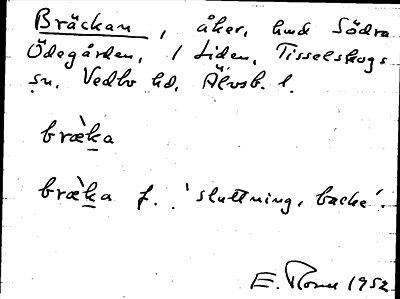 Bräckan, åker, hmd Södra
Ödegården, 1 Liden, Tisselskogs
sn, Vedbo hd, Älvsb. l.
bræ̀ka
bræ̀ka f. 'sluttning, backe'.
E. 1952